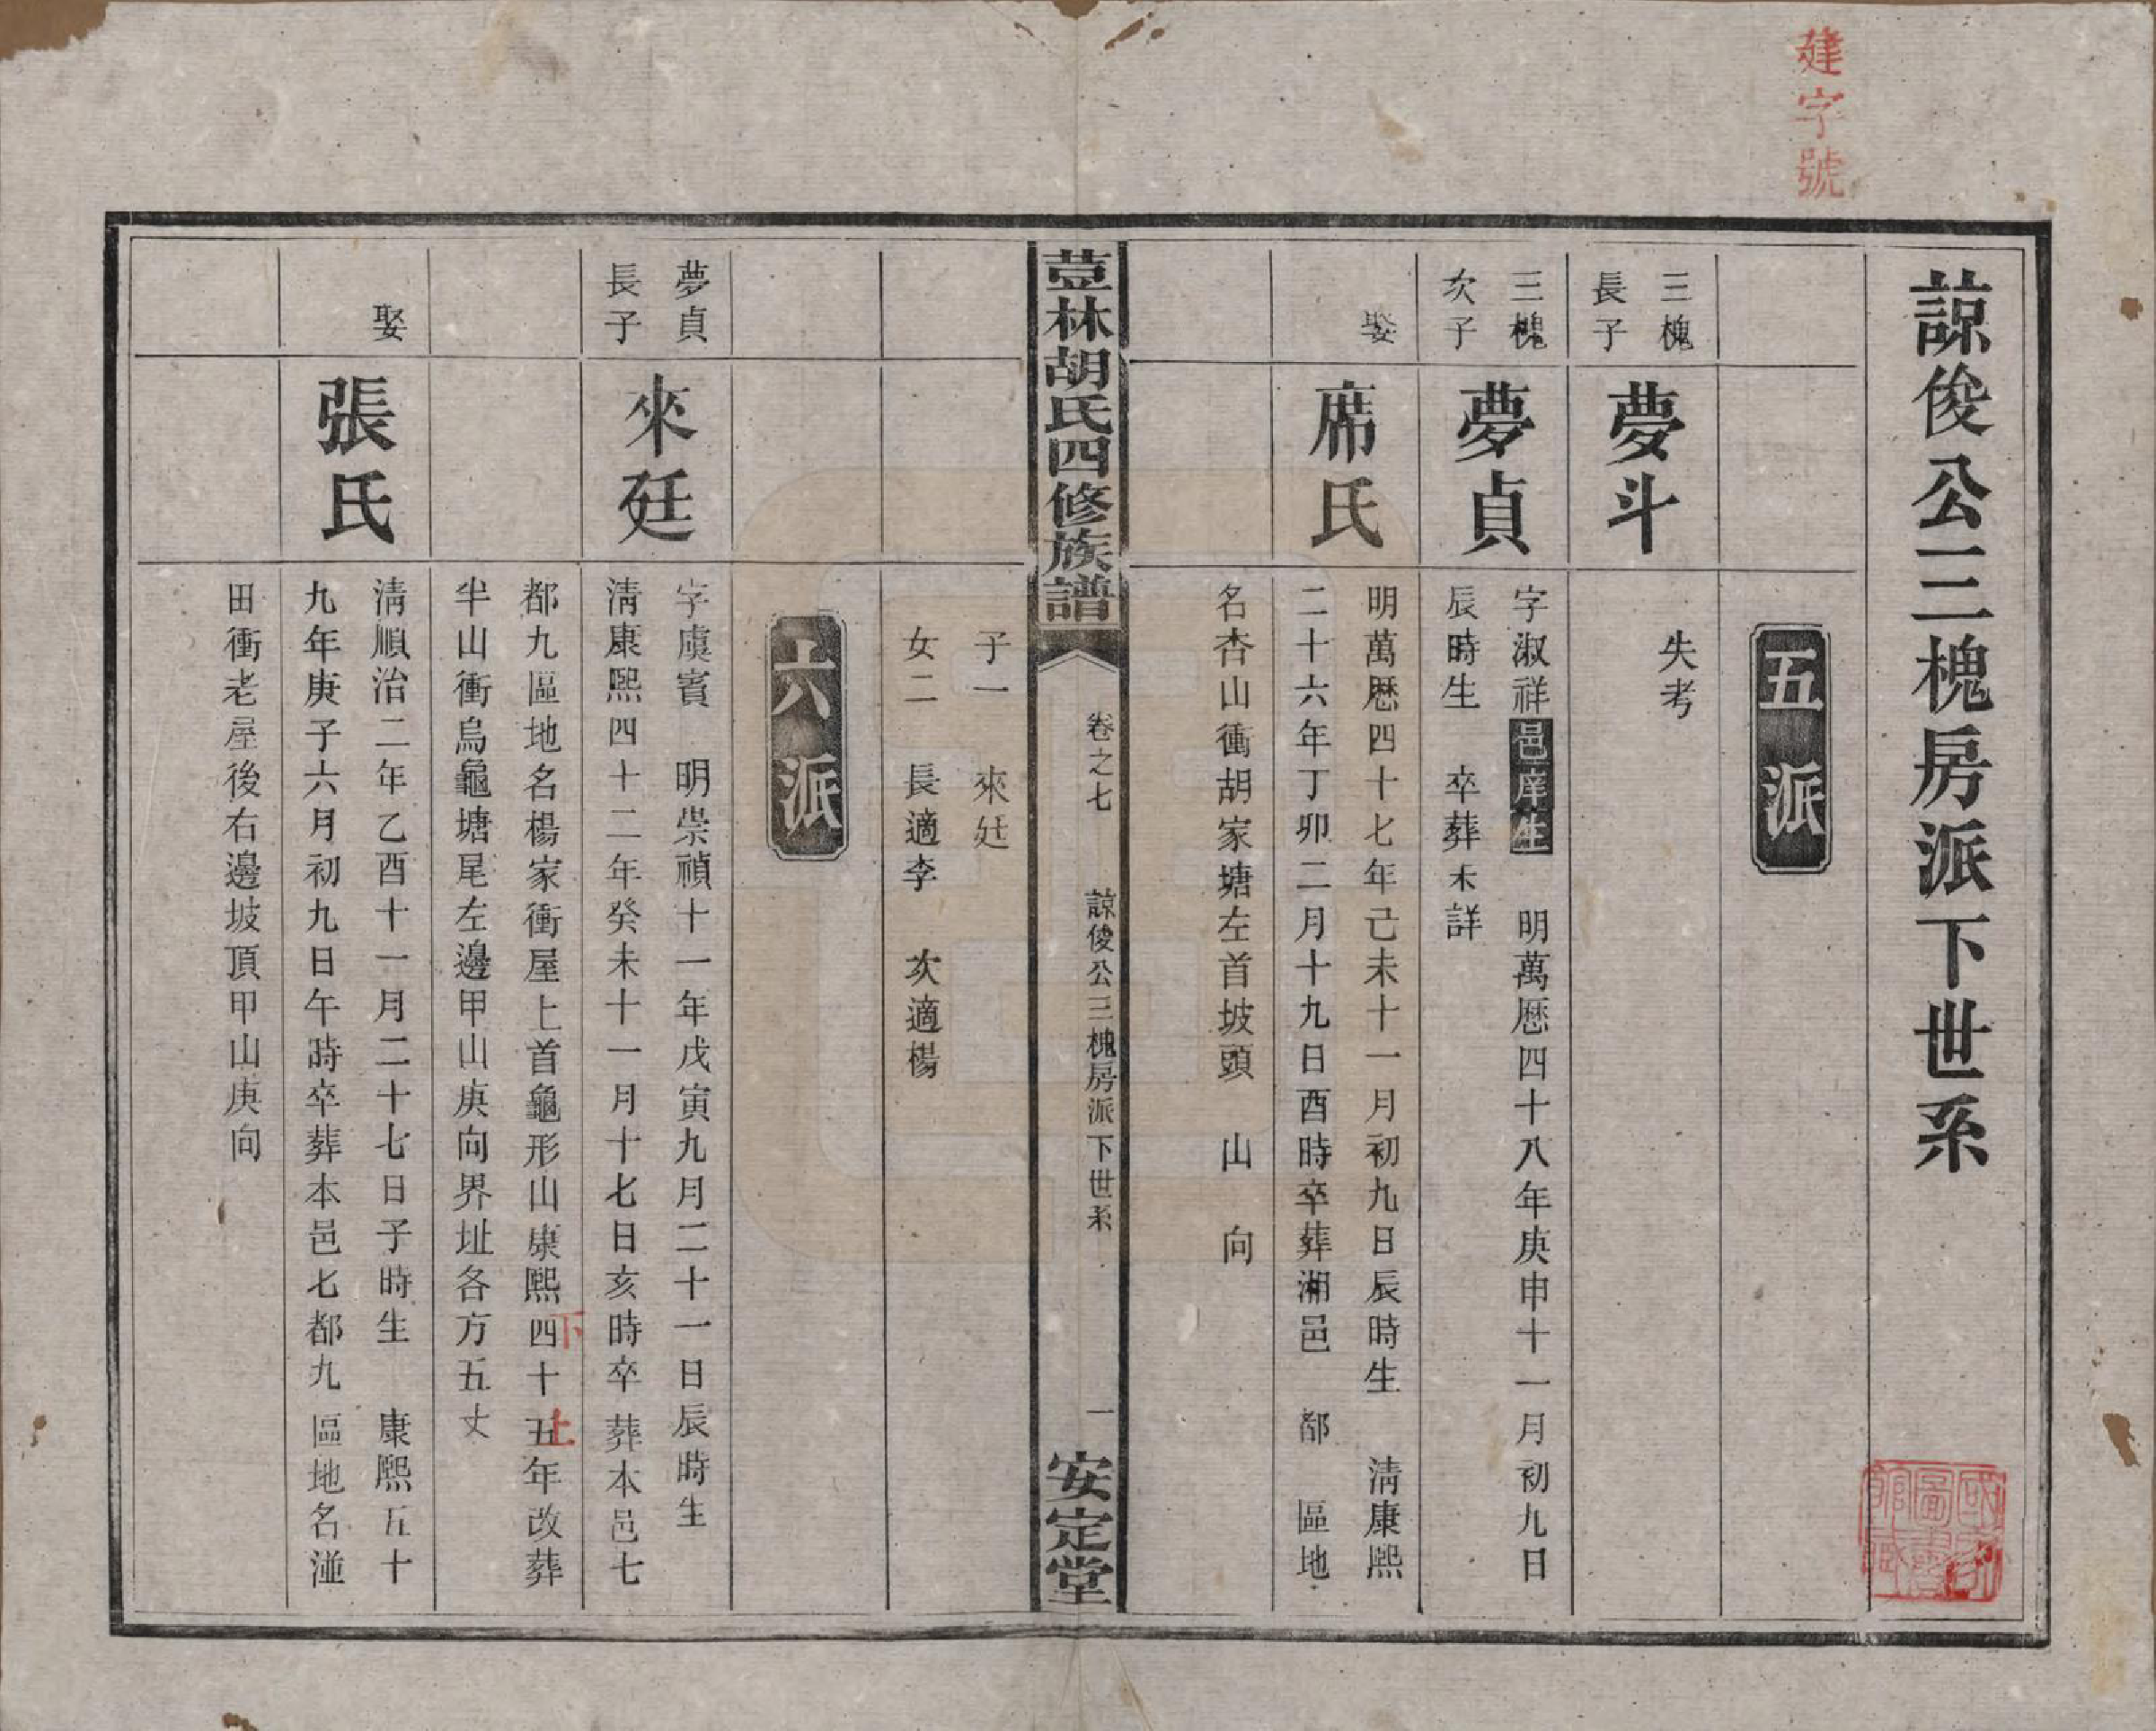 建字號
諒俊公三槐房派下世系
五派
三槐
長子
夢斗
失考
三槐
次子
夢貞
字淑祥邑庠生 明萬曆四十八年庚申十一月初九日
辰時生 卒葬未詳
娶
席氏
明萬曆四十七年己未十一月初九日辰時生 清康熙
二十六年丁卯二月十九日酉時卒葬湘邑 都 區地
名杏山衝胡家塘左首坡頭 山 向
荳林胡氏四修族譜
卷之七
諒俊公三槐房派下世系
一
安定堂
子一 來廷
女二 長適李 次適楊
六派
夢貞
長子
來廷
字虞賓 明崇禎十一年戊寅九月二十一日辰時生
清康熙四十二年癸未十一月十七日亥時卒葬本邑七
都九區地名楊家衝屋上首龜形山康熙四十五年改葬
下
上
半山衝烏龜塘尾左邊甲山庚向界址各方五丈
娶
張氏
清順治二年乙酉十一月二十七日子時生 康熙五十
九年庚子六月初九日午時卒葬本邑七都九區地名漨
田衝老屋後右邊坡頂甲山庚向